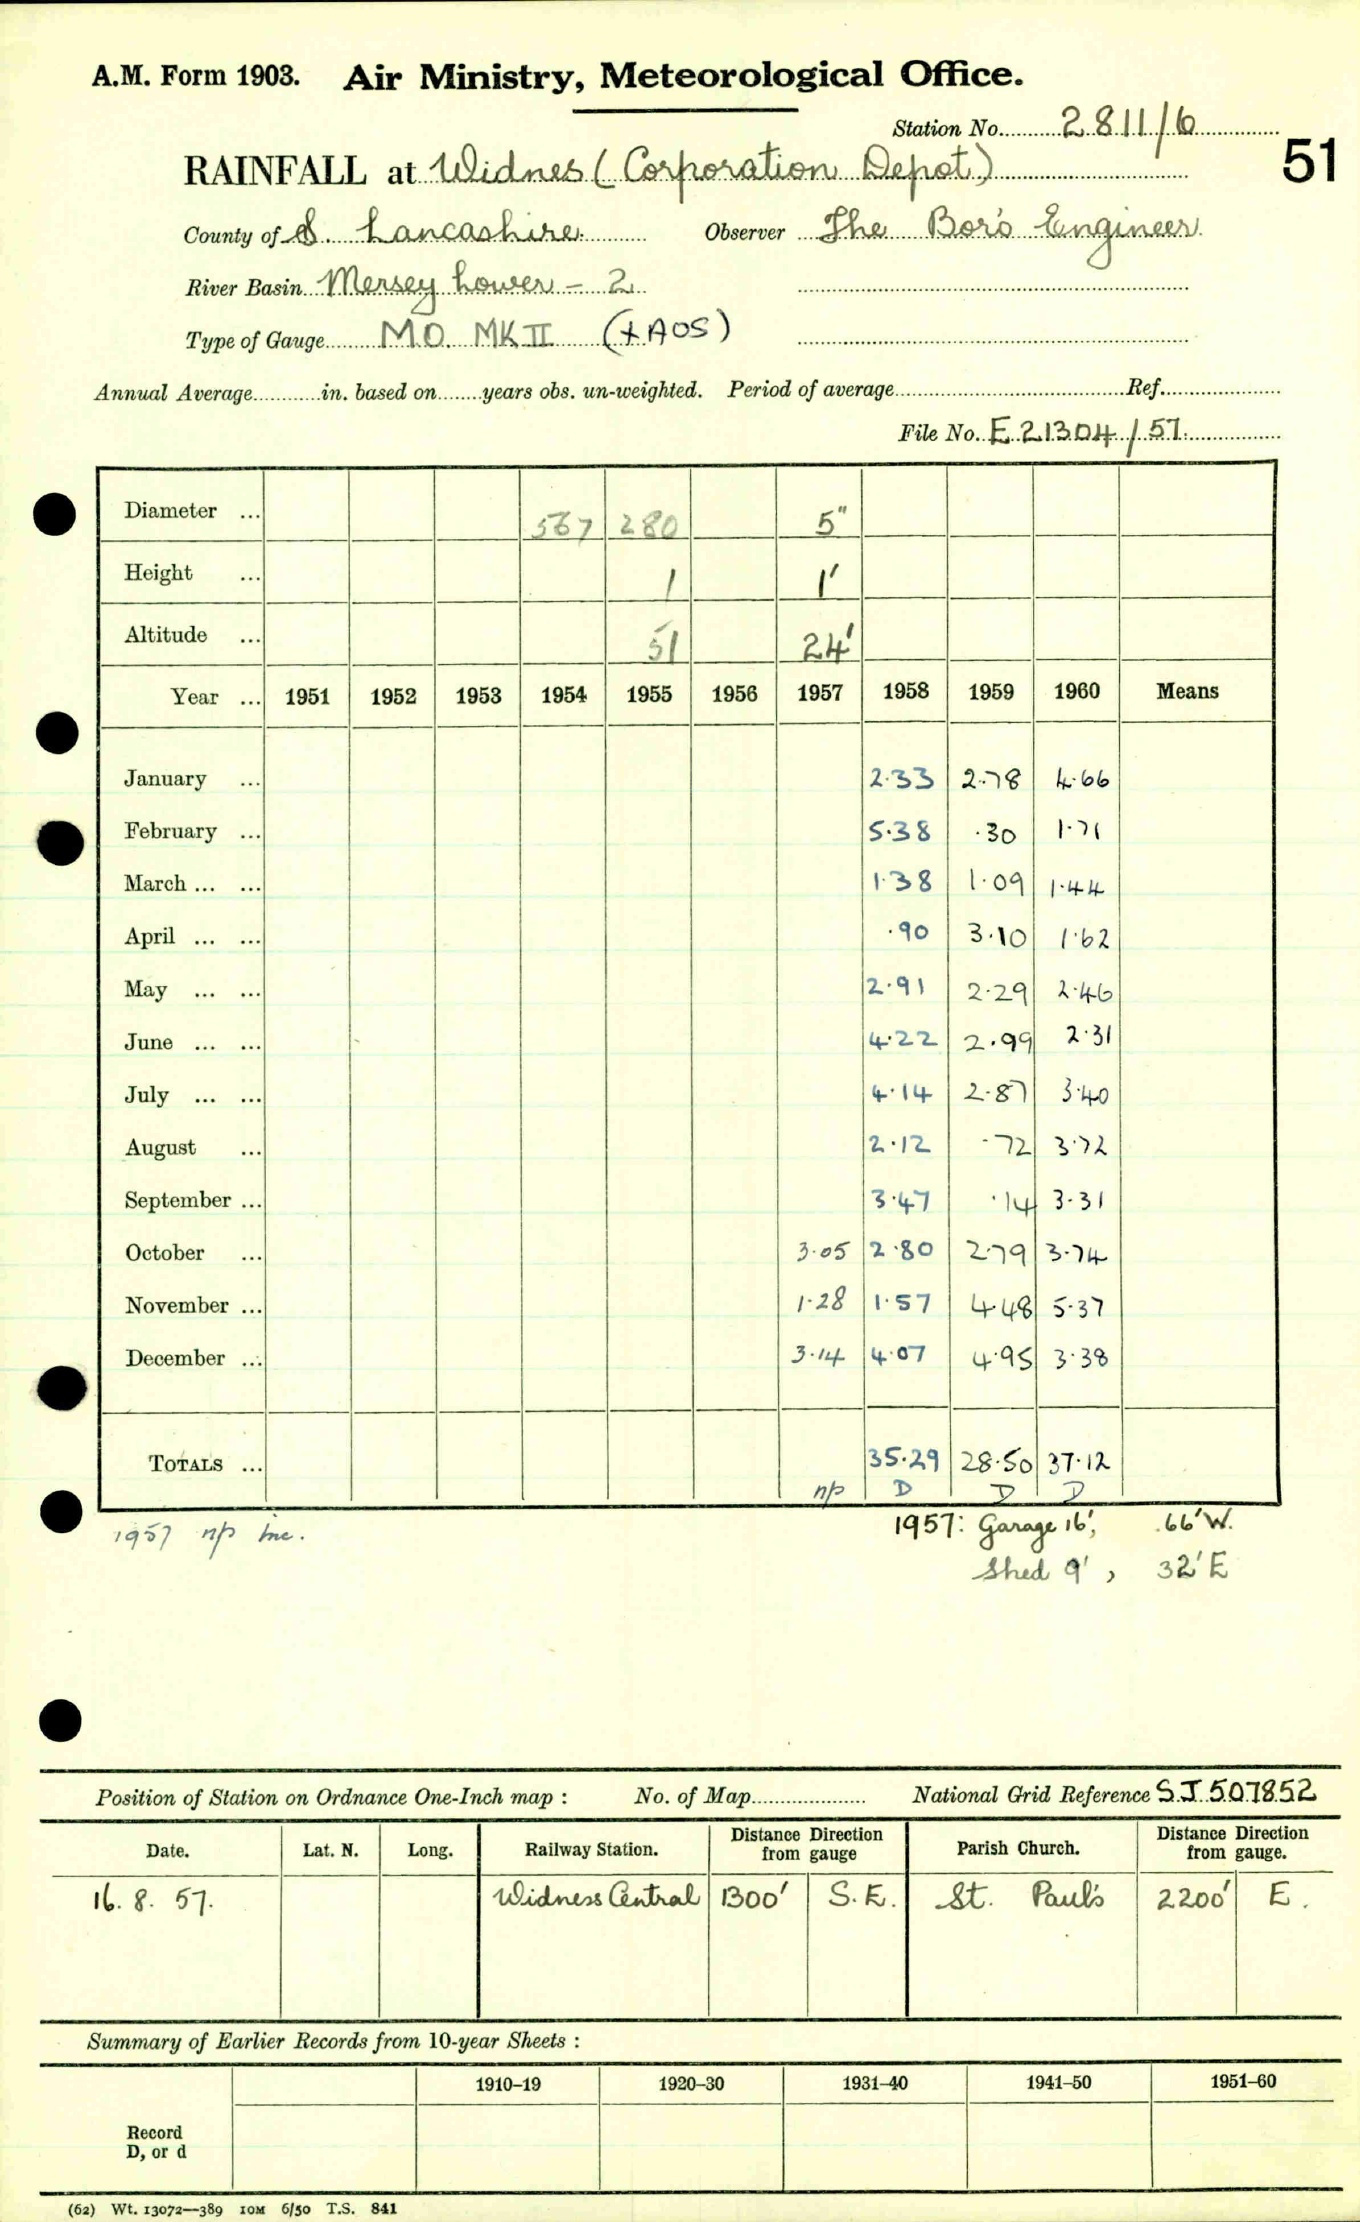 A.M. Form 1903. Air Ministry, Meteorological Office.
Station No. 2811/6
51
RAINFALL at Widnes (Corporation Depot)
County of S. Lancashire. Observer The Boro Engineer
River Basin Mersey Lower - 2
Type of Gauge M.O. MK II (+AOS)
Annual Average in. based on years obs. un-weighted. Period of average Ref.
File No. E 21304/57.
Diameter ... 567 280 5"
Height ... 1 1'
Altitude ... 51 24'
Year ... 1951 1952 1953 1954 1955 1956 1957 1958 1959 1960 Means
January ... 2.33 2.78 4.66
February ... 5.38 .30 1.71
March ... ... 1.38 1.09 1.44
April ... ... .90 3.10 1.62
May ... ... 2.91 2.29 2.46
June ... ... 4.22 2.99 2.31
July ... ... 4.14 2.87 3.40
August ... 2.12 .72 3.72
September ... 3.47 .14 3.31
October ... 3.05 2.80 2.79 3.74
November ... 1.28 1.57 4.48 5.37
December ... 3.14 4.07 4.95 3.38
TOTALS ... 35.29 28.50 37.12
np D D D
1957 np inc. 1957: Garage 16', 66'W.
Shed 9', 32'E
Position of Station on Ordnance One-Inch map : No. of Map National Grid Reference SJ 507852
Date. Lat. N. Long. Railway Station. Distance Direction from gauge Parish Church. Distance Direction from gauge.
16. 8. 57. Widness Central 1300' S.E. St. Paul's 2200' E.
Summary of Earlier Records from 10-year Sheets :
1910–19 1920–30 1931–40 1941–50 1951–60
Record
D, or d
(62) Wt. 13072—389 10M 6/50 T.S. 841